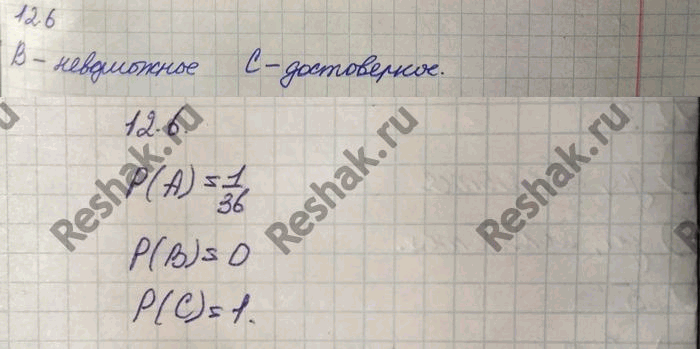 12.6
B – невозможное C – достоверное.
12.6
P(A) = 1/36
P(B) = 0
P(C) = 1.
Reshak.ru
Reshak.ru
Reshak.ru